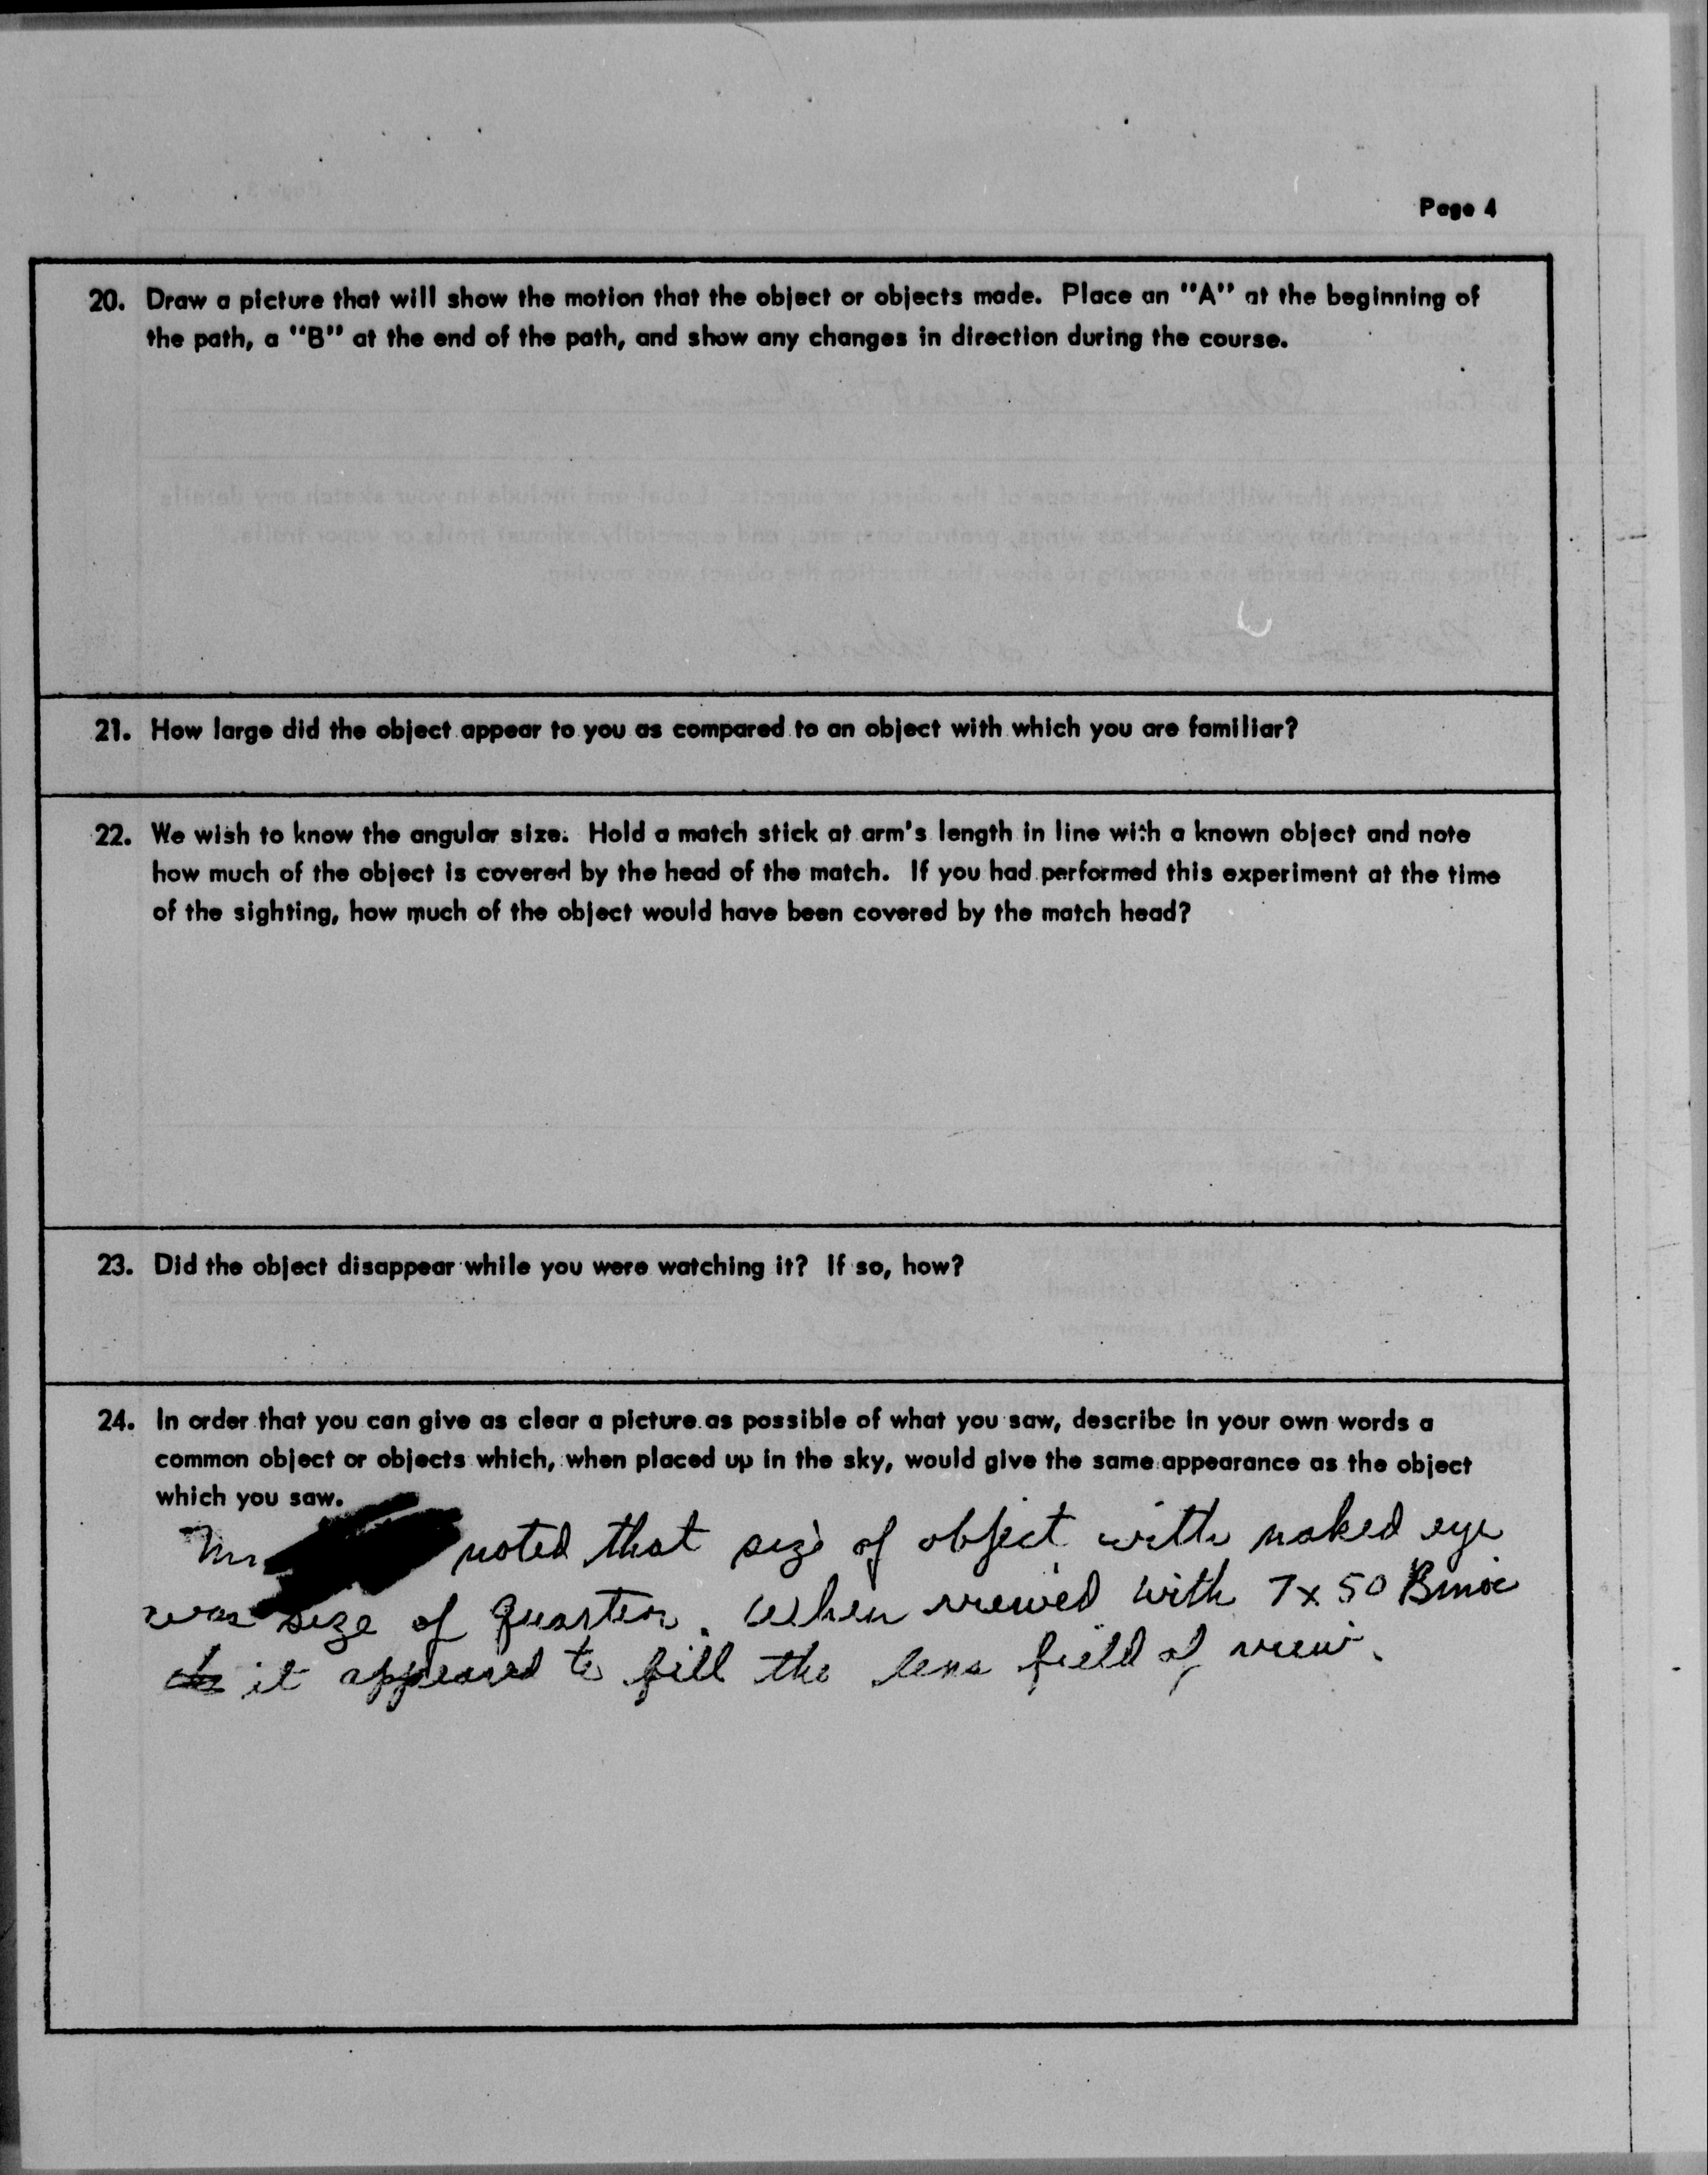 Page 4
20. Draw a picture that will show the motion that the object or objects made. Place an "A" at the beginning of
the path, a "B" at the end of the path, and show any changes in direction during the course.
21. How large did the object appear to you as compared to an object with which you are familiar?
22. We wish to know the angular size. Hold a match stick at arm's length in line with a known object and note
how much of the object is covered by the head of the match. If you had performed this experiment at the time
of the sighting, how much of the object would have been covered by the match head?
23. Did the object disappear while you were watching it? If so, how?
24. In order that you can give as clear a picture as possible of what you saw, describe in your own words a
common object or objects which, when placed up in the sky, would give the same appearance as the object
which you saw.
Mr noted that size of object with naked eye
was size of quarter. When viewed with 7x50 Binoc
it appeared to fill the lens field of view.